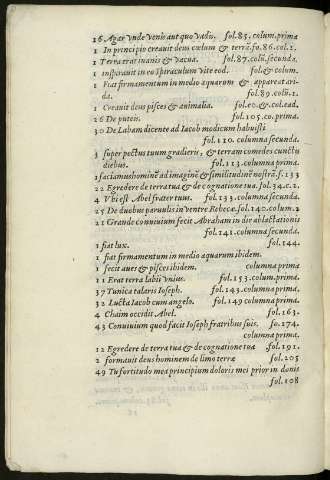 16 Agar vnde venis aut quo vadis. fol.85. colum.prima
1 In principio creauit deus cœlum & terrã.fo.86.col.1.
1 Terra erat inanis & vacua. fol.87.colũ.secunda.
1 inspirauit in eo spiraculum vite eod. fol.& colum.
1 Fiat firmamentum in medio aquarum & apparet arida. fol.89.colũ.1.
1 Creauit deus pisces & animalia. fol.eo.& col.ead.
26 De puteis. fol.105.co.prima.
30 De Labam dicente ad Iacob modicum habuisti
fol.110.columna secunda.
3 super pectus tuum gradieris, & terram comedes cunctu
diebus. fol.113.columna prima.
1 faciamus hominẽ ad imaginẽ & similitudinẽ nostrã.f.133
22 Egredere de terra tua & de cognatione tua.fol.34.c.1.
4 Vbi est Abel frater tuus. fol.133.columna secunda.
25 De duobus paruulis in ventre Rebecæ.fol.140.colum.2
21 Grande conuiuium fecit Abraham in die ablactationis
fol.141.columna secunda.
1 fiat lux. fol.144.
1 fiat firmamentum in medio aquarum ibidem.
1 fecit aues & pisces ibidem. columna prima
11 Erat terra labii vnius. fol.153.colum.prima.
37 Tunica talaris Ioseph. fol.143.columna prima.
32 Lucta Iacob cum angelo. fol.149 columna prima.
4 Chaim occidit Abel. fol.163.
43 Conuiuium quod facit Ioseph fratribus suis. fo.174.
columna prima.
12 Egredere de terra tua & de cognatione tua .fol.191.
2 formauit deus hominem de limo terræ fol.205
49 Tu fortitudo mea principium doloris mei prior in donis
fol.108